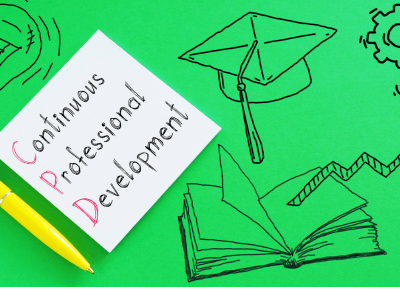 Continuous
Professional
Development